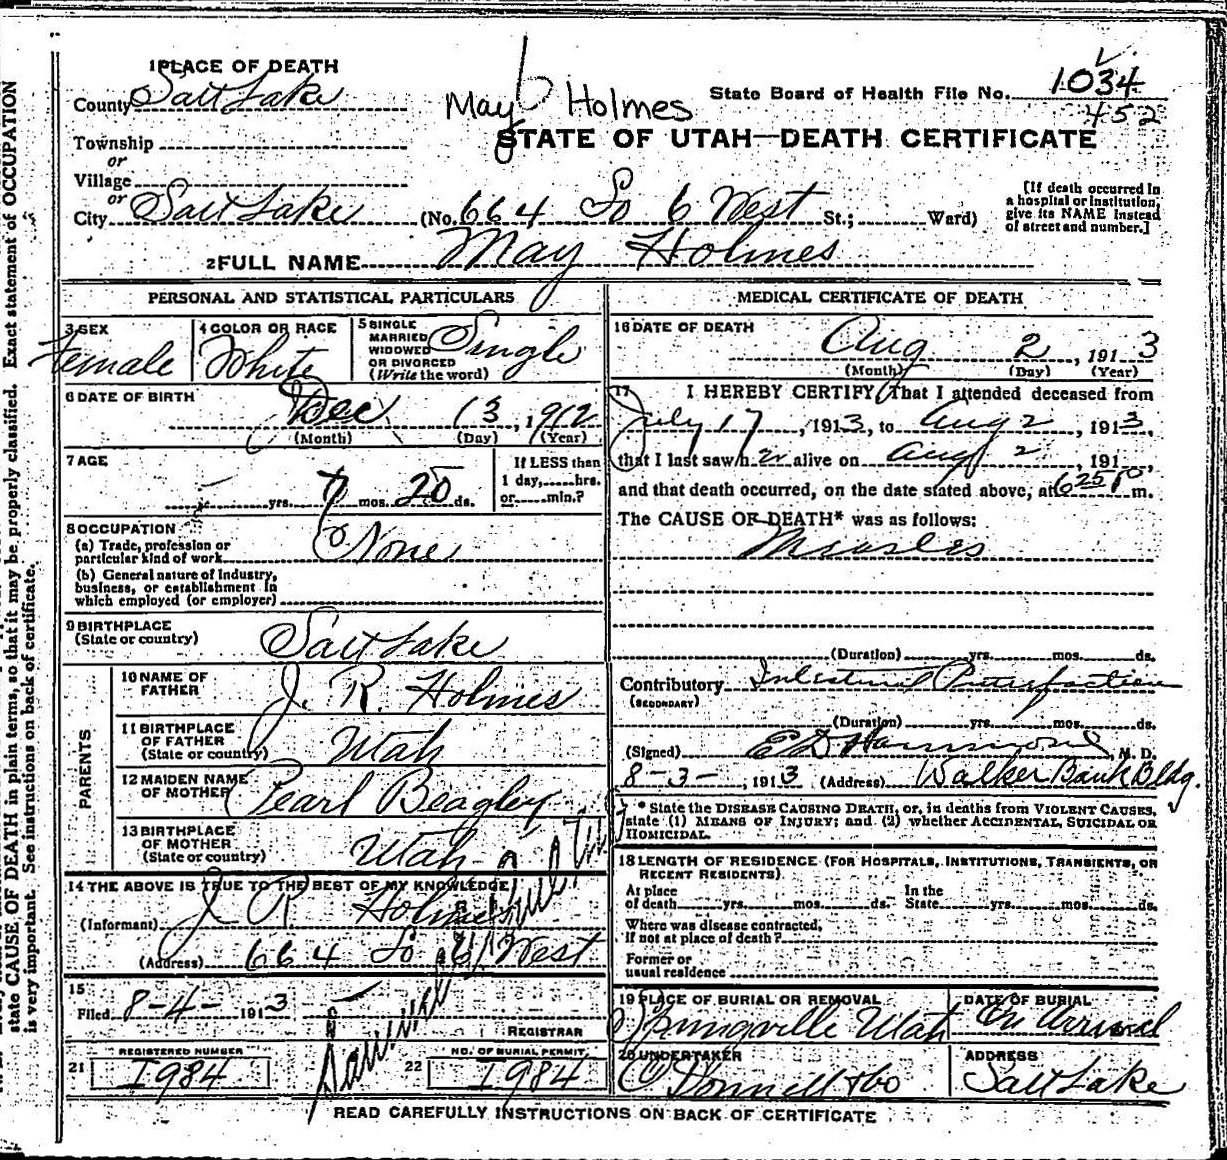 1 PLACE OF DEATH
County Salt Lake
Township
or
Village
or
City Salt Lake (No. 664 So 6 West St.; Ward)
May Holmes
State Board of Health File No. 1034
452
STATE OF UTAH—DEATH CERTIFICATE
[If death occurred in
a hospital or institution,
give its NAME instead
of street and number.]
2 FULL NAME May Holmes
PERSONAL AND STATISTICAL PARTICULARS
3 SEX
Female
4 COLOR OR RACE
White
5 SINGLE
MARRIED
WIDOWED
OR DIVORCED
(Write the word)
Single
6 DATE OF BIRTH
Dec 13, 1912
(Month) (Day) (Year)
7 AGE
yrs. 7 mos. 20 ds.
If LESS than
1 day, hrs.
or min.?
8 OCCUPATION
(a) Trade, profession or
particular kind of work None
(b) General nature of industry,
business, or establishment in
which employed (or employer)
9 BIRTHPLACE
(State or country) Salt Lake
PARENTS
10 NAME OF
FATHER J. R. Holmes
11 BIRTHPLACE
OF FATHER
(State or country) Utah
12 MAIDEN NAME
OF MOTHER Pearl Beagley
13 BIRTHPLACE
OF MOTHER
(State or country) Utah
14 THE ABOVE IS TRUE TO THE BEST OF MY KNOWLEDGE
(Informant) J R Holmes
(Address) 664 So 6 West
15
Filed 8-4- 1913
REGISTRAR
21 REGISTERED NUMBER
1984
22 NO. OF BURIAL PERMIT
1984
MEDICAL CERTIFICATE OF DEATH
16 DATE OF DEATH
Aug 2, 1913
(Month) (Day) (Year)
17 I HEREBY CERTIFY, That I attended deceased from
July 17, 1913, to Aug 2, 1913,
that I last saw her alive on Aug 2, 191 ,
and that death occurred, on the date stated above, at 625 P m.
The CAUSE OF DEATH* was as follows:
Measles
(Duration) yrs. mos. ds.
Contributory Intestinal Putrefaction
(SECONDARY)
(Duration) yrs. mos. ds.
(Signed) E D Hammond, M. D.
8-3-, 1913 (Address) Walker Bank Bldg.
* State the DISEASE CAUSING DEATH, or, in deaths from VIOLENT CAUSES,
state (1) MEANS OF INJURY; and (2) whether ACCIDENTAL, SUICIDAL OR
HOMICIDAL.
18 LENGTH OF RESIDENCE (FOR HOSPITALS, INSTITUTIONS, TRANSIENTS, OR
RECENT RESIDENTS).
At place
of death yrs. mos. ds.
In the
State yrs. mos. ds.
Where was disease contracted,
if not at place of death?
Former or
usual residence
19 PLACE OF BURIAL OR REMOVAL
Springville Utah
DATE OF BURIAL
On Arrival
20 UNDERTAKER
O'Donnell & Co
ADDRESS
Salt Lake
READ CAREFULLY INSTRUCTIONS ON BACK OF CERTIFICATE
state CAUSE OF DEATH in plain terms, so that it may be properly classified. Exact statement of OCCUPATION
is very important. See instructions on back of certificate.